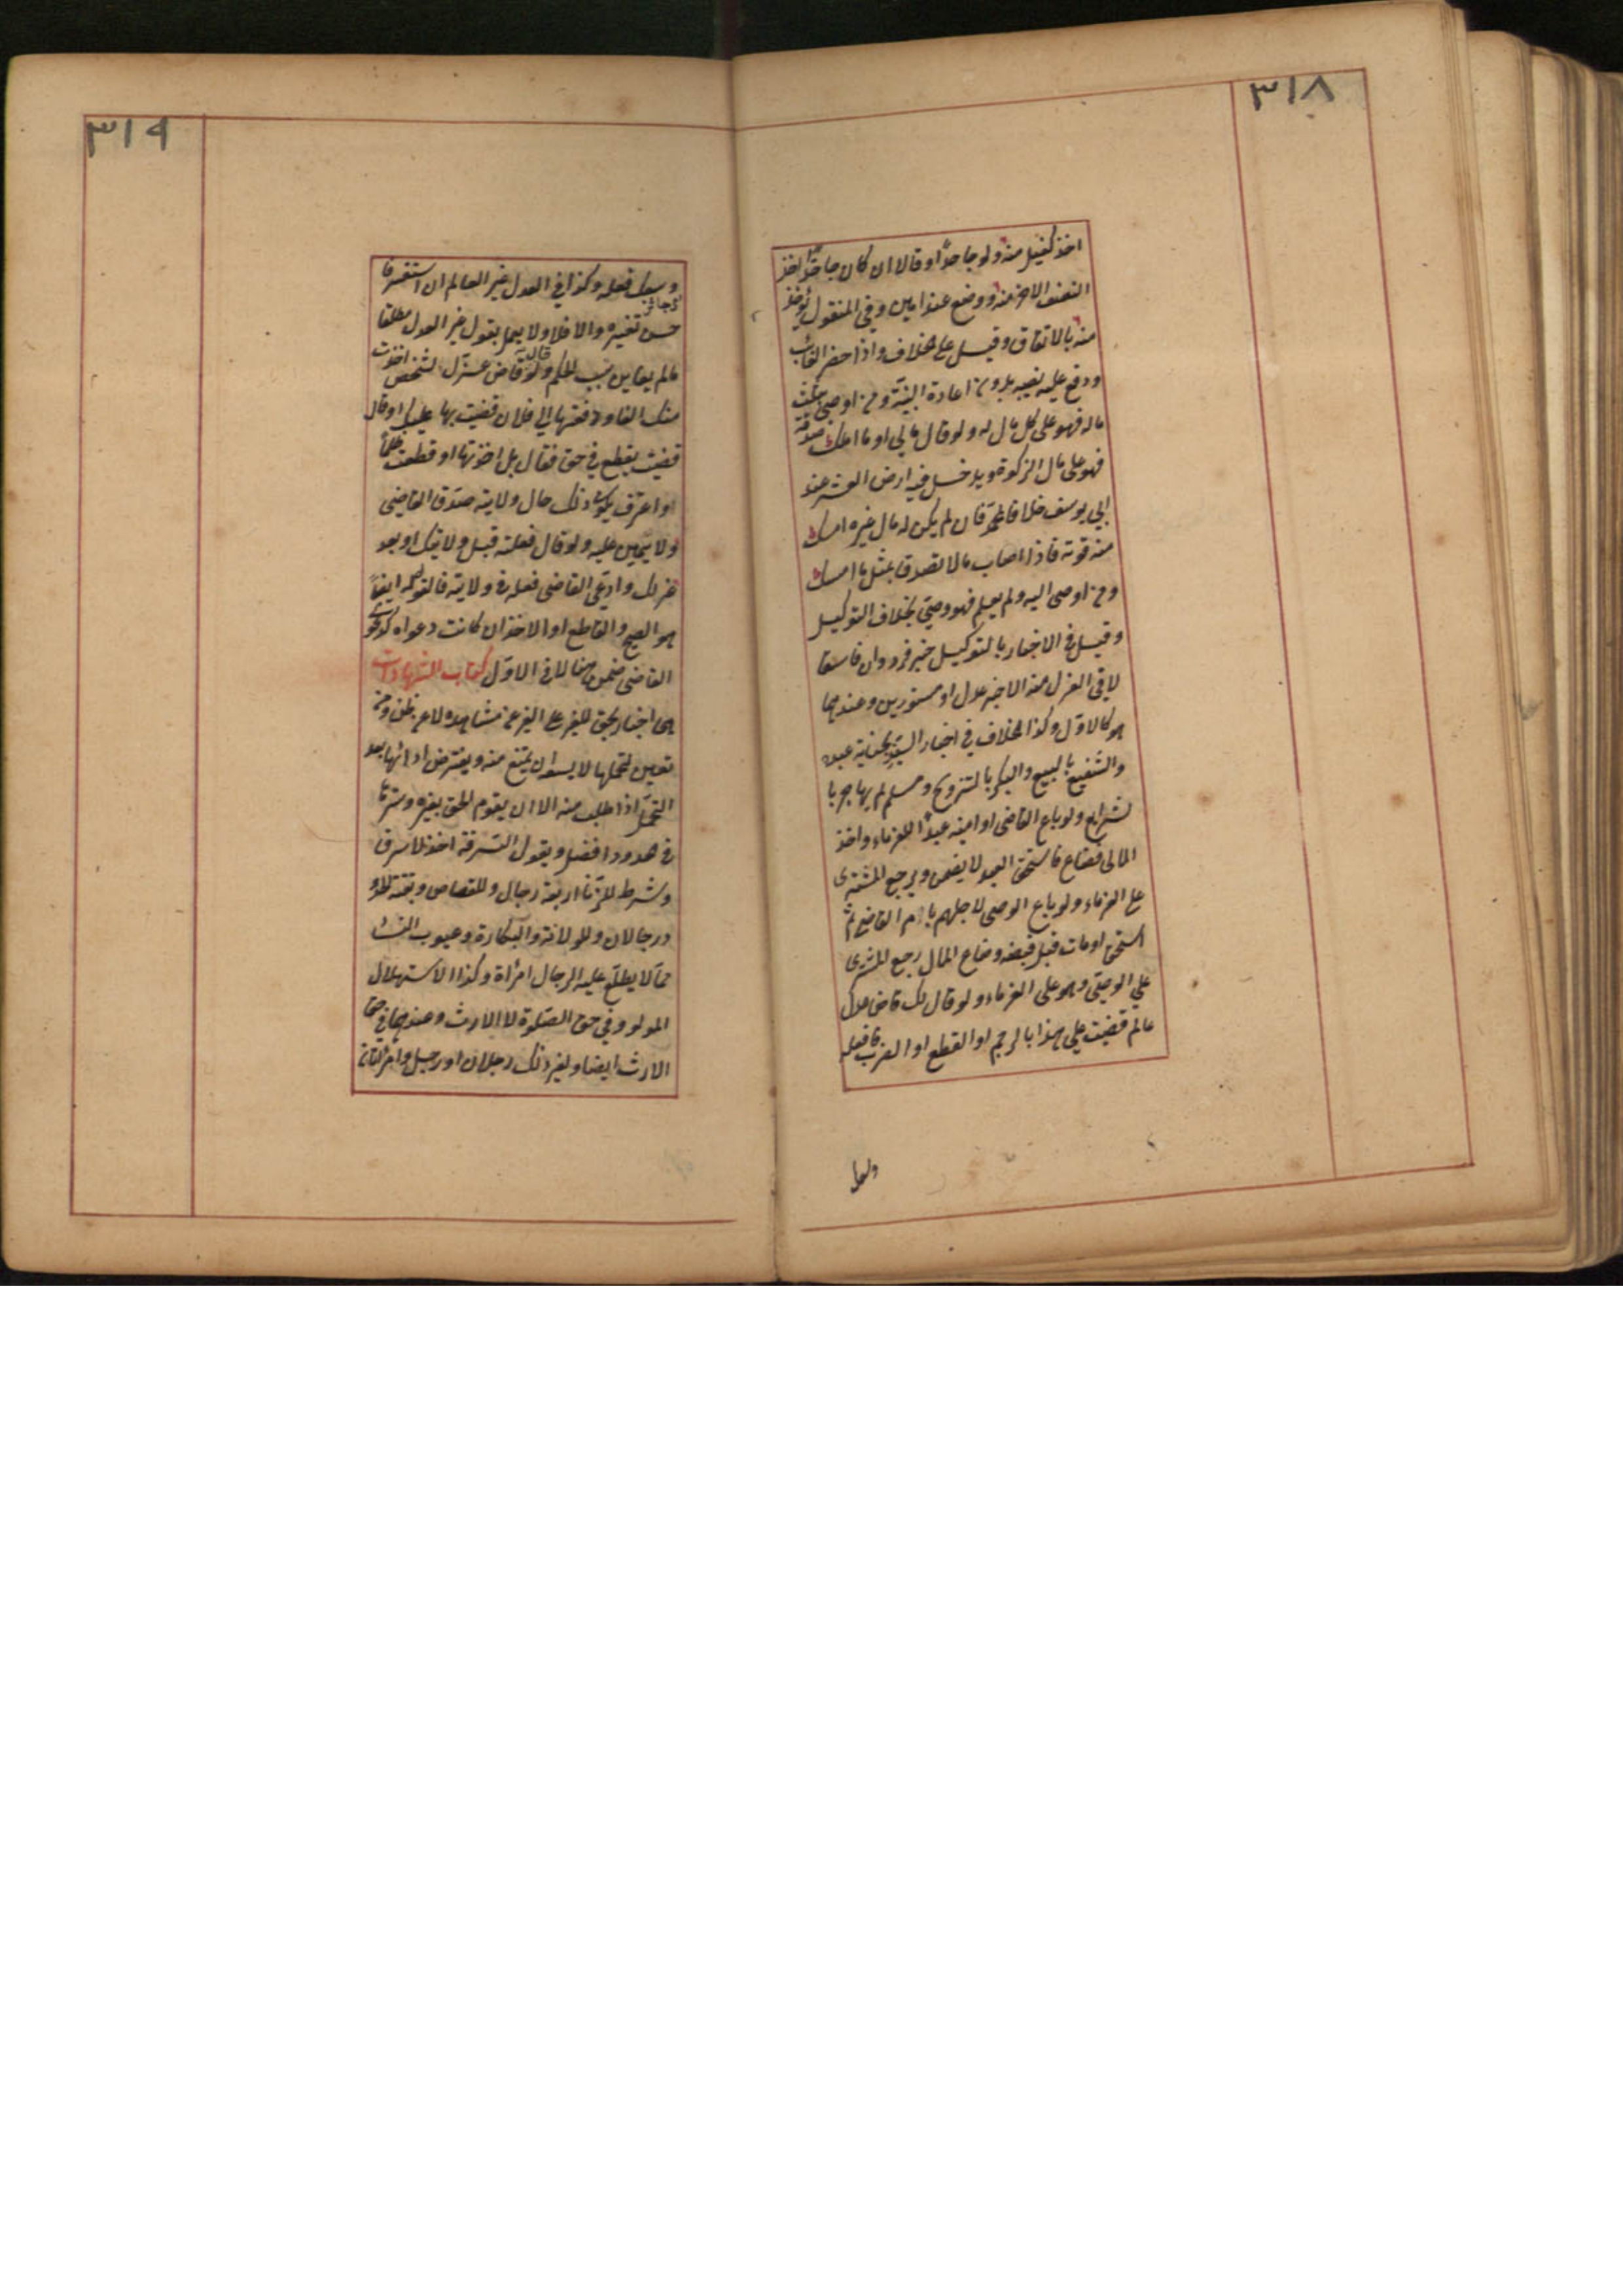 ٣١٨
اخذ كفيل منه ولو جاحدا وقالا ان كان جاحدا اخذ
النصف الاخر منه ووضع عند امين وفي المنقول يؤخذ
منه بالاتفاق وقيل على الخلاف واذا حضر الغائب
ودفع عليه نصيبه بدون اعادة البينة ومن اوصى بثلث
ماله فهو على كل مال له ولو قال مالي او ما املك صدقة
فهو على مال الزكوة ويدخل فيه ارض العشر عند
ابي يوسف خلافا لمحمد فان لم يكن له مال غيره امسك
منه قوته فاذا اصاب مالا تصدق بمثل ما امسك
ومن اوصى اليه ولم يعلم فهو وصي بخلاف التوكيل
وقبل في الاخبار بالتوكيل خبر فرد وان فاسقا
لا في العزل منه الا خبر عدل او مستورين وعندهما
هو كالاول وكذا الخلاف في اخبار السيد بجناية عبده
والشفيع بالبيع والبكر بالتزويج ومسلم لم يهاجر با
لشرايع ولو باع القاضي او امينه عبدا للغرماء واخذ
المال فضاع فاستحق العبد لا يضمن ويرجع المشتري
على الغرماء ولو باع الوصي لاجلهم بامر القاضي ثم
استحق او مات قبل قبضه وضاع المال رجع المشتري
علي الوصي وهو على الغرماء ولو قال لك قاض عدل
عالم قضيت علي هذا بالرجم او القطع او الضرب فافعله
٣١٩
وسعك فعله وكذا في العدل غير العالم ان استفسر فا
حسن تفسيره والا فلا ولا يعمل بقول غير العدل مطلقا
مالم يعاين سبب الحكم ولو قال قاض عزل لشخص اخذت
منك الفا ودفعتها الي فلان قضيت بها عليك او قال
قضيت بقطع في حق فقال بل اخذتها او قطعت ظلما
واعترف بكون ذلك حال ولايته صدق القاضي
ولا يمين عليه ولو قال فعلته قبل ولايتك او بعد
عزلك وادعى القاضي فعله في ولايته فالقول له ايضا
هو الصحيح والقاطع او الاخذ ان كانت دعواه كدعوى
القاضي ضمن هنا لا في الاول كتاب الشهادات
هي اخبار بحق للغير على الغير عن مشاهدة لا عن ظن ومن
تعين لتحملها لا يسعه ان يمتنع منه ويفترض اداؤها بعد
التحمل اذا طلب منه الا ان يقوم الحق بغيره وسترها
في حدود افضل ويقول السرقة اخذ لا سرق
وشرط للزنا اربعة رجال وللقصاص وبقية الحدود
رجلان وللولادة والبكارة وعيوب النساء
مما لا يطلع عليه الرجال امرأة وكذا الاستهلال
المولود في حق الصلوة لا الارث وعندهما في حق
الارث ايضا ولغير ذلك رجلان او رجل وامرأتان